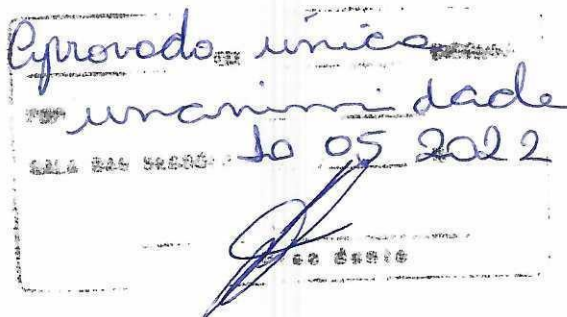 Aprovado única
unanimidade
SALA DAS SESSÕ 10 05 2022